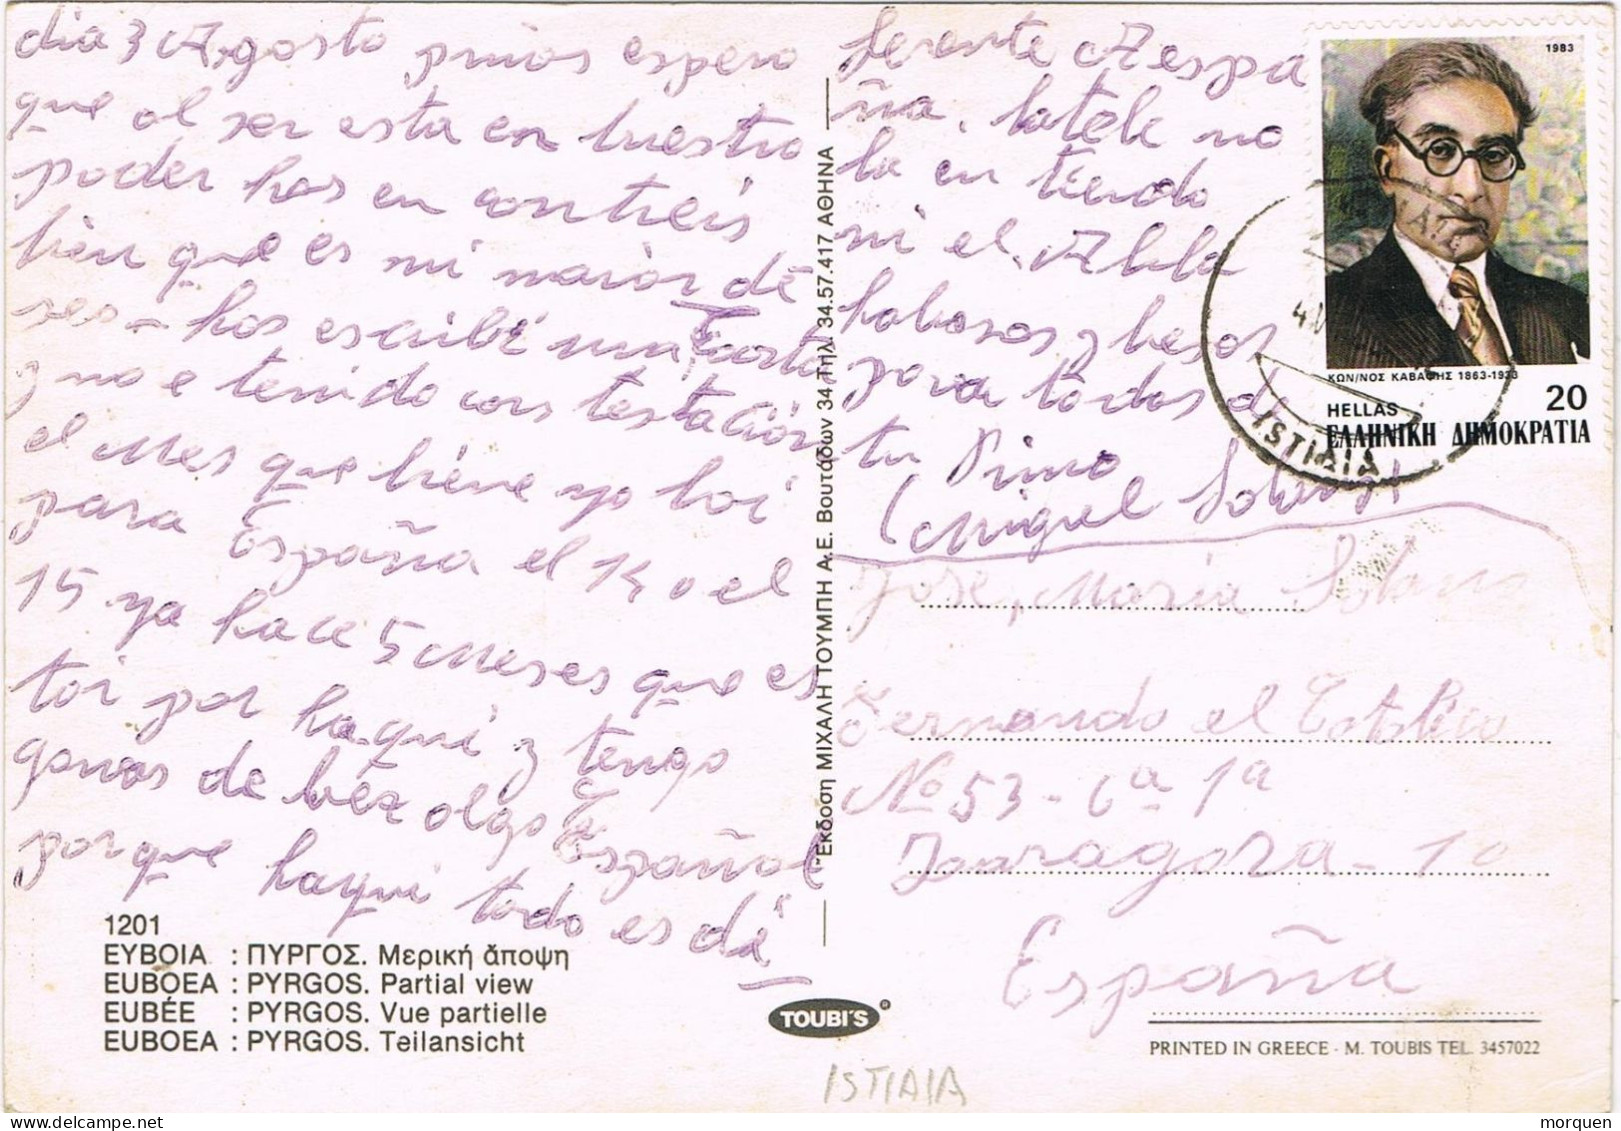 dia 3 Agosto primos espero
que al ser esta en buestro
poder hos en contreis
bien que es mi maior dé
ses - hos escribí una Carta
y no e tenido cons testación
el Mes que biene yo boi
para España el 14 o el
15 ya hace 5 Meses que es
toi por haqui y tengo
ganas de bez algo
Español
porque haqui todo es dí
ferente A espa
ña. la tele no
la en tiendo
ni el Abla
habrasos y besos
para todos de
tu Primo
(Miguel Solanas)
1983
ΚΩΝ/ΝΟΣ ΚΑΒΑΦΗΣ 1863-1933
HELLAS 20
ΕΛΛΗΝΙΚΗ ΔΗΜΟΚΡΑΤΙΑ
ISTIAIA
José, María Solanas
Fernando el Católico
No 53 - 6ª 1ª
Zaragoza - 10
España
Έκδοση ΜΙΧΑΛΗ ΤΟΥΜΠΗ Α.Ε. Βουτάδων 34 Τηλ. 34.57.417 ΑΘΗΝΑ
1201
ΕΥΒΟΙΑ : ΠΥΡΓΟΣ. Μερική ἄποψη
EUBOEA : PYRGOS. Partial view
EUBÉE : PYRGOS. Vue partielle
EUBOEA : PYRGOS. Teilansicht
TOUBI'S ®
PRINTED IN GREECE - M. TOUBIS TEL. 3457022
ISTIAIA
morquen